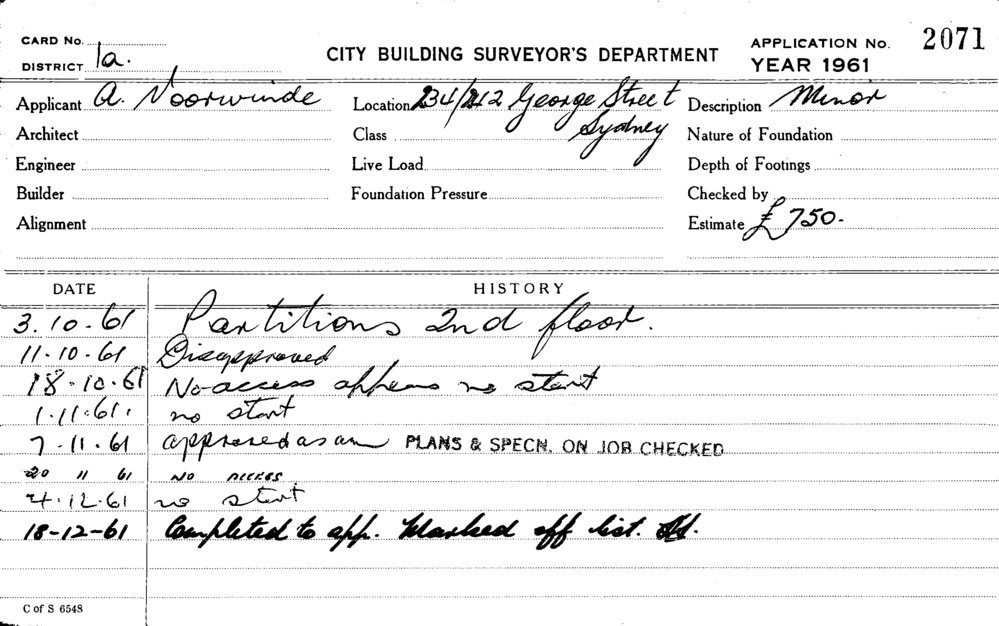 CARD No.
DISTRICT 1a.
CITY BUILDING SURVEYOR'S DEPARTMENT
APPLICATION No. 2071
YEAR 1961
Applicant A. Noorwinde Location 234/242 George Street Description Minor
Architect Class Sydney Nature of Foundation
Engineer Live Load Depth of Footings
Builder Foundation Pressure Checked by
Alignment Estimate £750-
DATE HISTORY
3.10-61 Partitions 2nd floor.
11-10-61 Disapproved
18-10-61 No access appears no start
1.11.61. no start
7-11.61 approved as am PLANS & SPECN. ON JOB CHECKED
20 11 61 NO ACCESS
4.12.61 no start
18-12-61 Completed to app. Marked off list.
C of S 6548